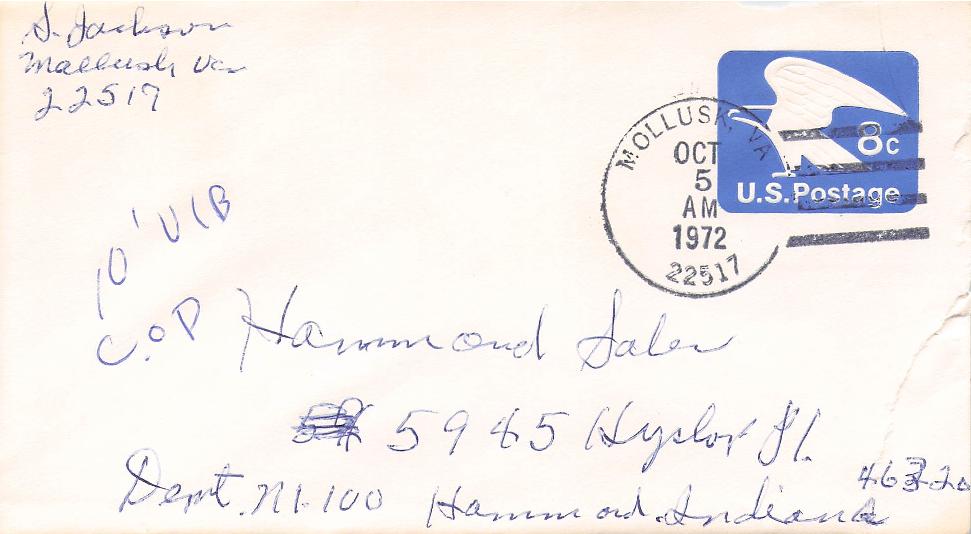 S. Jackson
Mollusk Va
22517
MOLLUSK, VA
OCT
5
AM
1972
22517
8c
U.S. Postage
10' VIB
C.O.D
Hammond Sales
5945 Hyslop Pl.
Dept. N1-100 Hammond, Indiana
46320